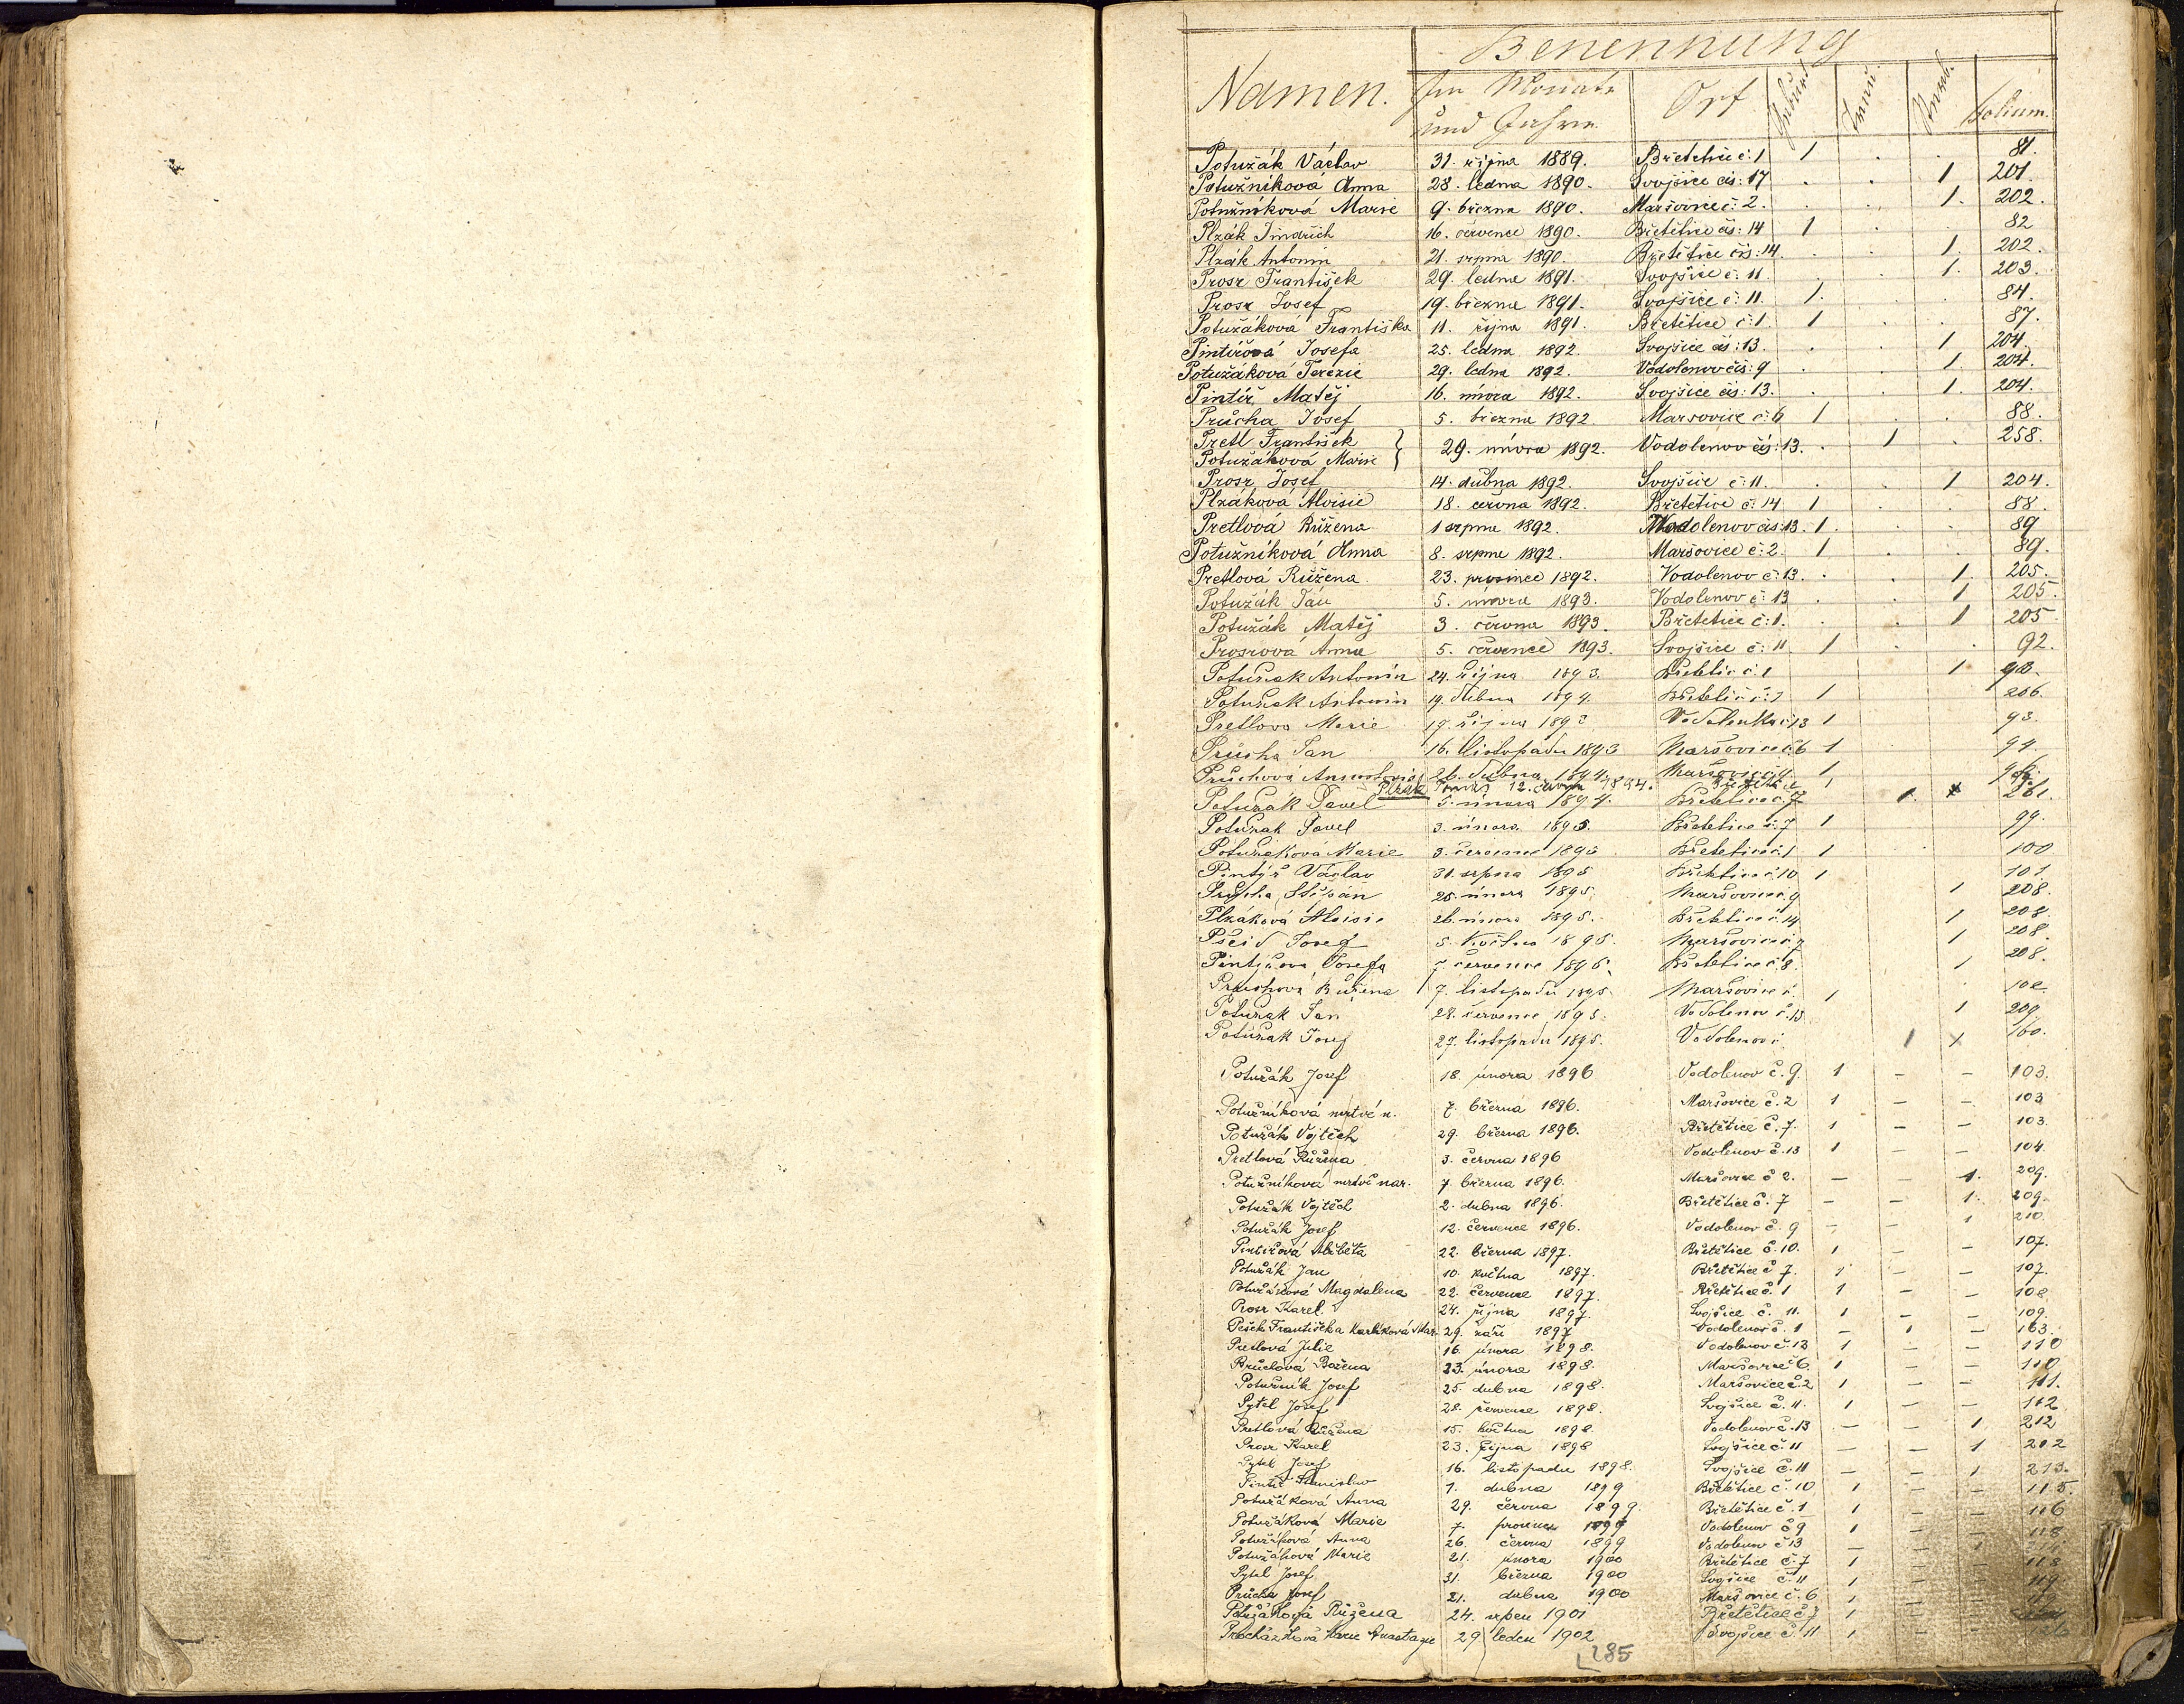 Benennung
Namen. Im Monate und Jahre Ort Geburt Trau. Sterb. Folium.
Potužák Václav 31. října 1889. Břetětice č: 1 1 . . 81.
Potužníková Anna 28. ledna 1890. Svojšice čís: 17 . . 1 201.
Potužníková Marie 9. března 1890. Maršovice č: 2. . . 1. 202.
Plzák Jindřich 16. července 1890. Břetětice čís: 14 1 . 82
Plzák Antonín 21. srpna 1890. Břetětice čís: 14. . . 1. 202.
Prosr František 29. ledna 1891. Svojšice č: 11. . . 1. 203.
Prosr Josef 19. března 1891. Svojšice č: 11. 1. . 84.
Potužáková Františka 11. října 1891. Břetětice č: 1. 1 . . 87.
Pintířová Josefa 25. ledna 1892. Svojšice čís: 13. . . 1 204.
Potužáková Terezie 29. ledna 1892. Vodolenov čís: 9 . . 1. 204.
Pintíř Matěj 16. února 1892. Svojšice čís: 13. . . 1. 204.
Průcha Josef 5. března 1892. Marsovice č: 6 1 . . 88.
Pretl František
Potužáková Marie } 29. února 1892. Vodolenov čís: 13. . 1 . 258.
Prosr Josef 14. dubna 1892. Svojšice č: 11. . . 1 204.
Plzáková Aloisie 18. června 1892. Břetětice č: 14 1 . . 88.
Pretlová Růžena 1 srpna 1892. Vodolenov čís: 13. 1. . . 89
Potužníková Anna 8. srpna 1892. Maršovice č: 2. 1 . . 89.
Pretlová Růžena. 23. prosince 1892. Vodolenov č: 13. . . 1. 205.
Potužák Ján 5. února 1893. Vodolenov č: 13 . . 1 205.
Potužák Matěj 3. června 1893. Břetětice č: 1. . . 1 205
Prosrová Anna 5. července 1893. Svojšice č: 11 1 . . 92.
Potužak Antonín 24. Října 1893. Břetětic č. 1 1
Potužak Antonín 19. dubna 1894. 1 206.
Pretlova Marie 1 93.
Průcha Jan 16. listopadu 1893 Maršovice č. 6 1 94.
Průchová 26. dubna 1894. Maršovice 1
Plzák Tomáš 12. června 1894. Břetětice 1
Potužák Pavel 5. února 1894. Břetětice č. 7 1. x 261.
Potužak Pavel 3. února 1895. Břetětice č. 7 1 99.
Potužaková Marie 3. července 1895 Břetětice č. 1 1 100
Pintýř Václav 31. srpna 1895 Břetětice č. 10 1 101.
Průcha Štěpán 25. února 1895. Maršovice č. 9 1 208.
Plzáková Aloisie 26. února 1895. Břetětice č. 14 1 208.
Josef 5. Května 1895. Maršovice č. 7 1 208.
Pintířova Josefa 7. července 1895. Břetětice č. 8. 1 208.
Průchová Růžena 7. listopadu 1895. Maršovice č. 1 102
Potužak Jan 28. července 1895. Vodolenov č. 13 1 209
Potužak Josef 27. listopadu 1895. Vodolenov č. 1 x 160.
Potužák Josef 18. února 1896 Vodolenov č. 9. 1 – – 103.
Potužníková mrtvě n. 7. března 1896. Maršovice č. 2 1 – – 103
Potužák Vojtěch 29. března 1896. Břetětice č. 7. 1 – – 103.
Pretlová Růžena 3. června 1896 Vodolenov č. 13 1 – – 104.
Potužníková mrtvě nar. 7. března 1896. Maršovice č 2. – – 1. 209.
Potužák Vojtěch 2. dubna 1896. Břetětice č. 7 – – 1. 209.
Potužák Josef 12. července 1896. Vodolenov č. 9 – – 1 210.
Pintířová Alžběta 22. března 1897. Břetětice č. 10. 1 – – 107.
Potužák Jan 10. května 1897. Břetětice č 7. 1 – – 107.
Potužáková Magdalena 22. července 1897. Břetětice č. 1 1 – – 108
Prosr Karel 24. října 1897. Svojšice č. 11. 1 – – 109.
Pešek Františka Karlíková Mar. 29. září 1897 Vodolenov č. 1 – 1 – 163.
Pretlová Julie 16. února 1898. Vodolenov č. 13 1 – – 110
Průchová Božena 23. února 1898. Maršovice č 6. 1 – – 110.
Potužník Josef 25. dubna 1898. Maršovice č. 2 1 – – 111.
Pytel Josef 28. července 1898. Svojšice č. 11. 1 – – 112
Pretlová Růžena 15. května 1898 Vodolenov č. 13 – – 1 212
Prosr Karel 23. října 1898 Svojšice č. 11 – – 1 212
Pytel Josef 16. listopadu 1898. Svojšice č. 11 – – 1 213.
Pintíř Stanislav 7. dubna 1899 Břetětice č. 10 1 – – 115.
Potužáková Anna 29. června 1899. Břetětice č. 1 1 – – 116
Potužáková Marie 7. prosince 1899 Vodolenov č 9 1 – – 118
Potužáková Anna 26. června 1899 Vodolenov č 13 – – 1
Potužáková Marie 21. února 1900 Břetětice č. 7 1 – – 118
Pytel Josef 31. března 1900 Svojšice č. 11 1 – – 119
Průcha Josef 21. dubna 1900 Maršovice č. 6 1 – –
Potužáková Růžena 24. srpen 1901 Břetětice č 7 1 – –
Procházková Marie Anastazie 29 leden 1902 Svojšice č. 11 1 – –
285